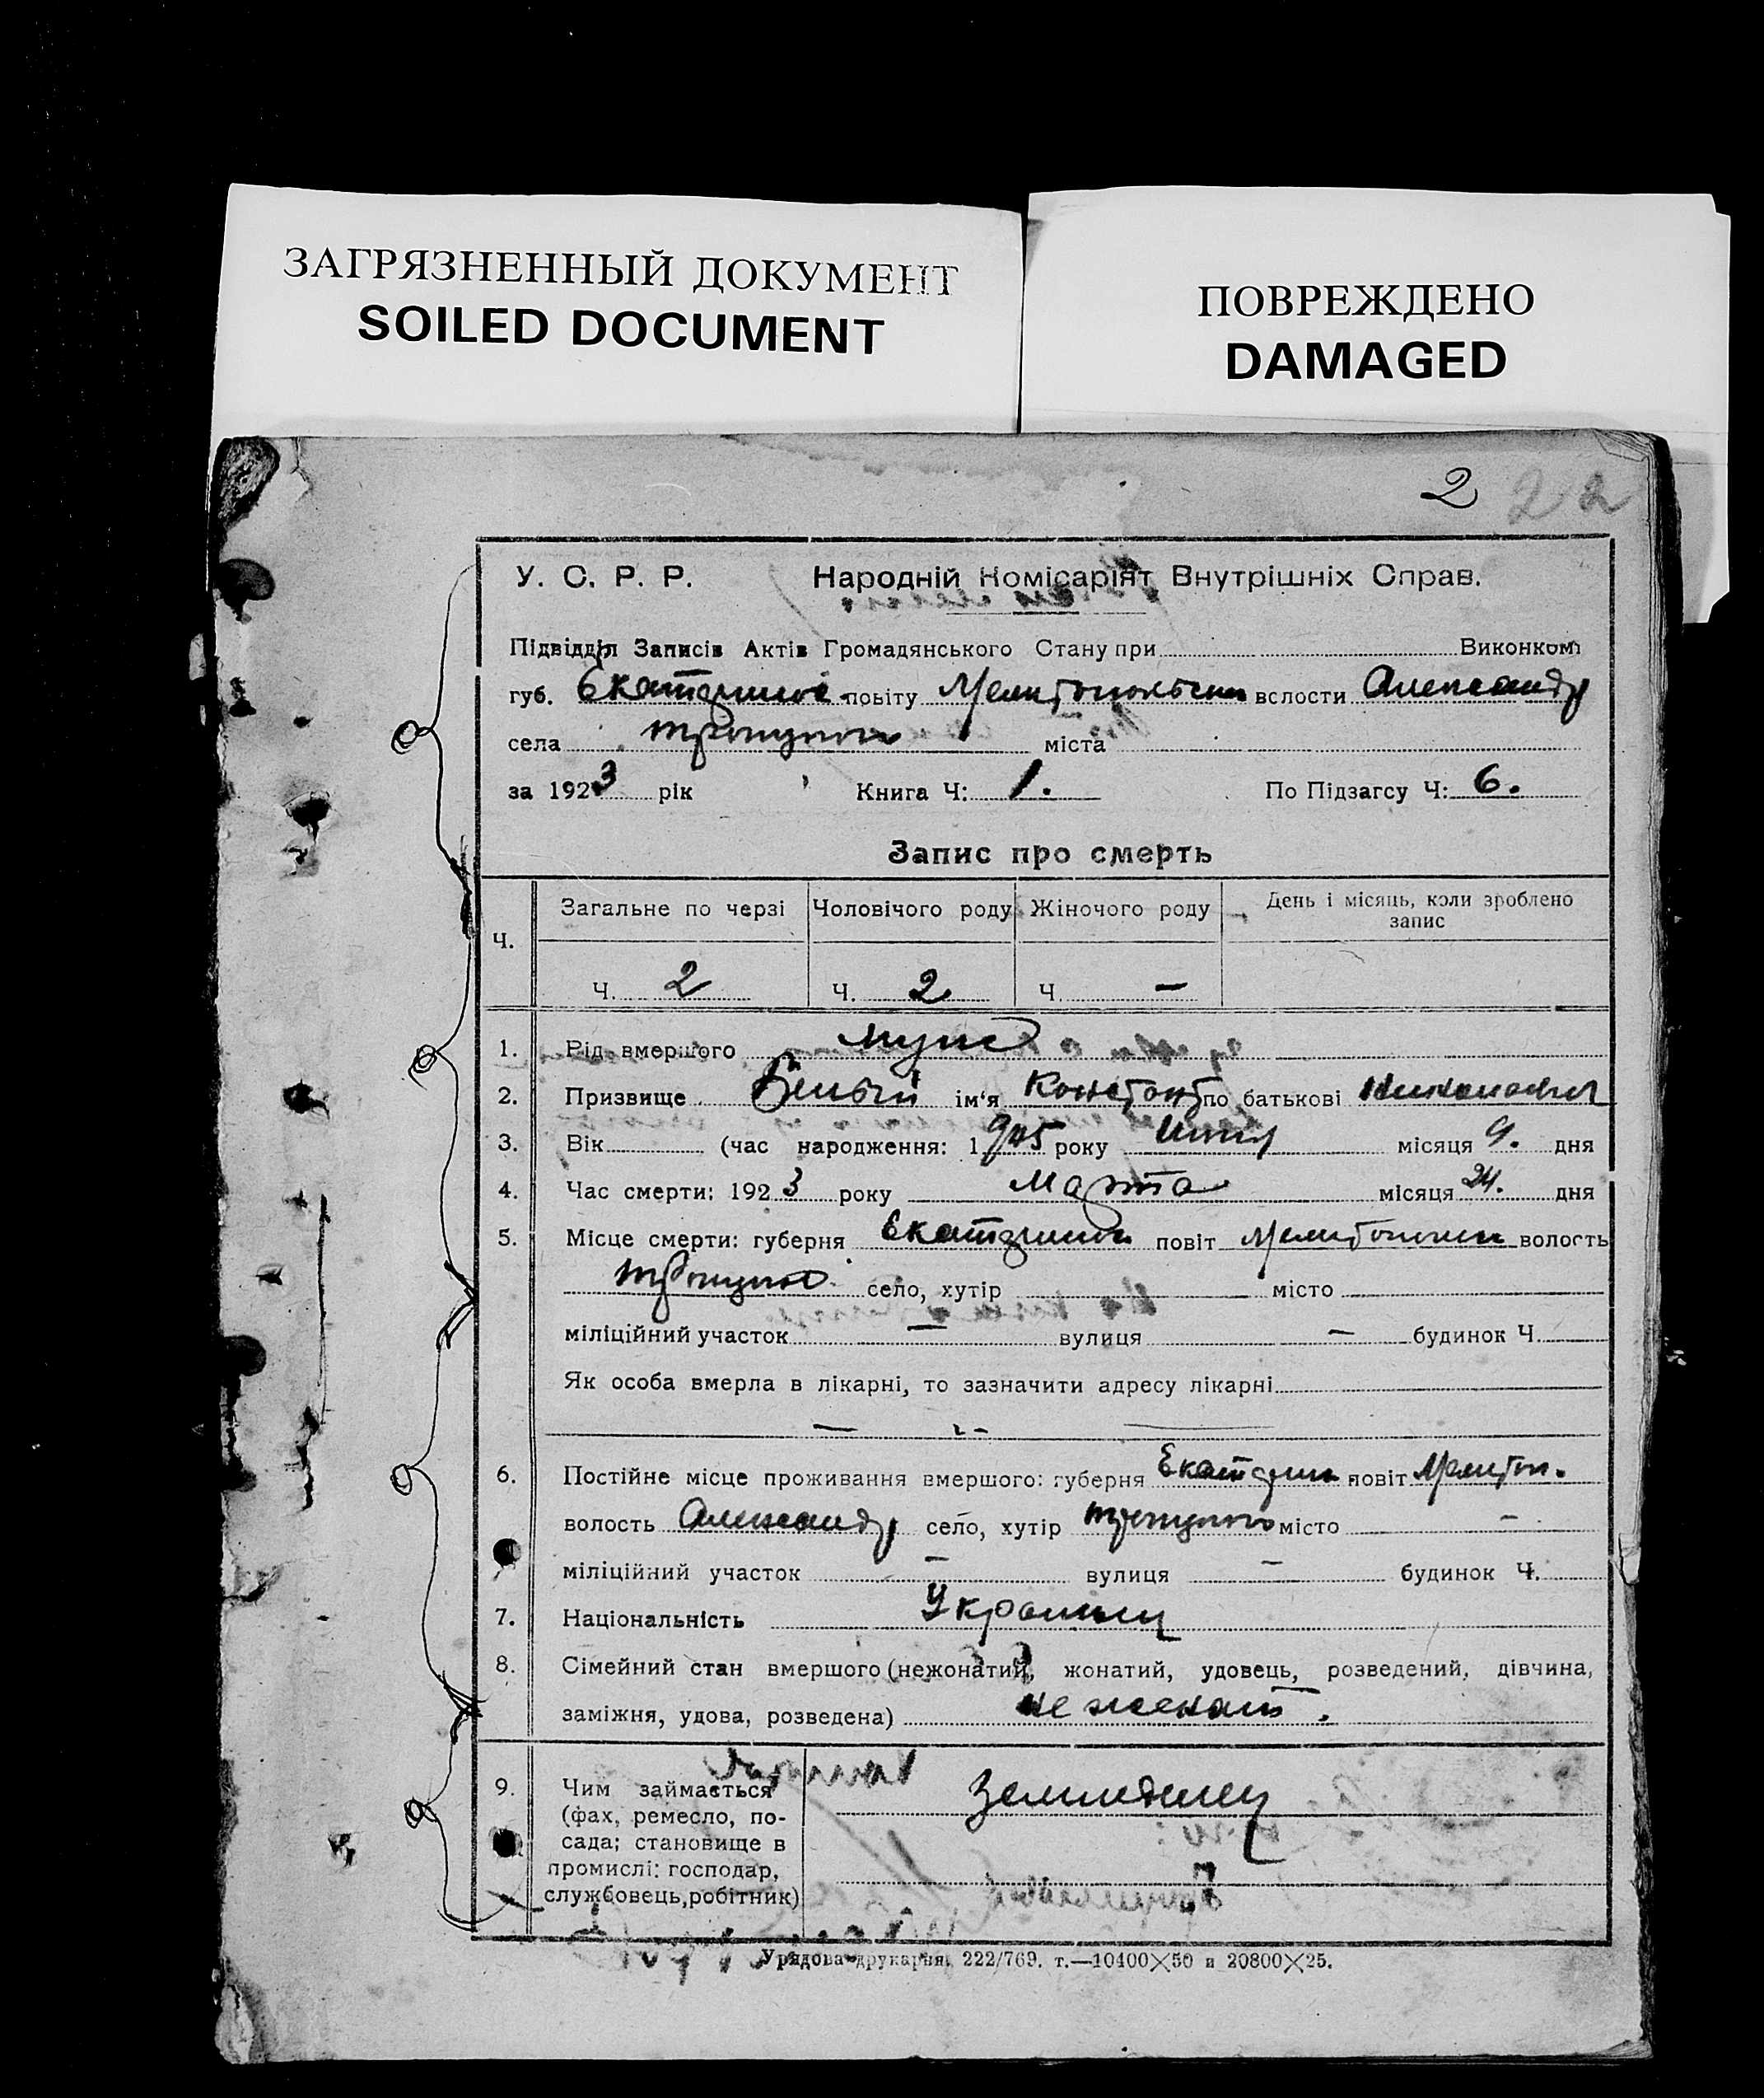 ЗАГРЯЗНЕННЫЙ ДОКУМЕНТ
SOILED DOCUMENT
ПОВРЕЖДЕНО
DAMAGED
2 22
У. С. Р. Р. Народній Комісаріят Внутрішніх Справ.
Підвідділ Записів Актів Громадянського Стану при Виконком
губ. повіту волости Александр
села міста
за 1923 рік Книга Ч: 1. По Підзагсу Ч: 6.
Запис про смерть
Ч. Загальне по черзі Чоловічого роду Жіночого роду День і місяць, коли зроблено
запис
Ч. 2 Ч. 2 Ч. —
1. Рід вмершого
2. Призвище ім'я Констант по батькові
3. Вік (час народження: 1 року місяця 9. дня
4. Час смерти: 1923 року Марта місяця 24. дня
5. Місце смерти: губерня повіт волость
село, хутір місто
міліційний участок — вулиця — будинок Ч.
Як особа вмерла в лікарні, то зазначити адресу лікарні
6. Постійне місце проживання вмершого: губерня Екатерин повіт Мелитоп.
волость Александр село, хутір місто —
міліційний участок — вулиця — будинок Ч.
7. Національність Украинец
8. Сімейний стан вмершого (нежонатий, жонатий, удовець, розведений, дівчина,
заміжня, удова, розведена) не женат.
9. Чим займається
(фах, ремесло, по-
сада; становище в
промислі: господар,
службовець, робітник)
Урядова друкарня. 222/769. т.—10400×50 и 20800×25.